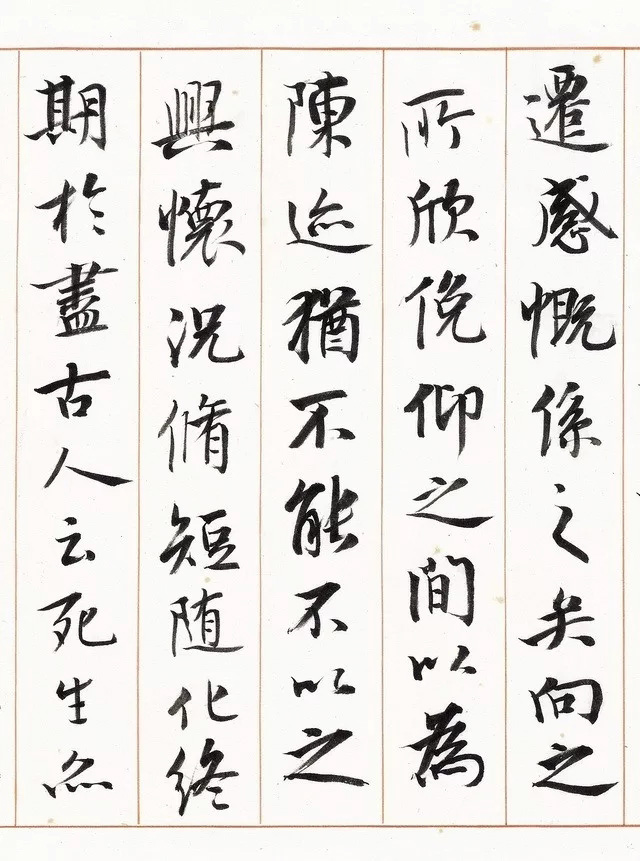 遷感慨係之矣向之
所欣俛仰之間以為
陳迹猶不能不以之
興懷況脩短随化終
期於盡古人云死生亦